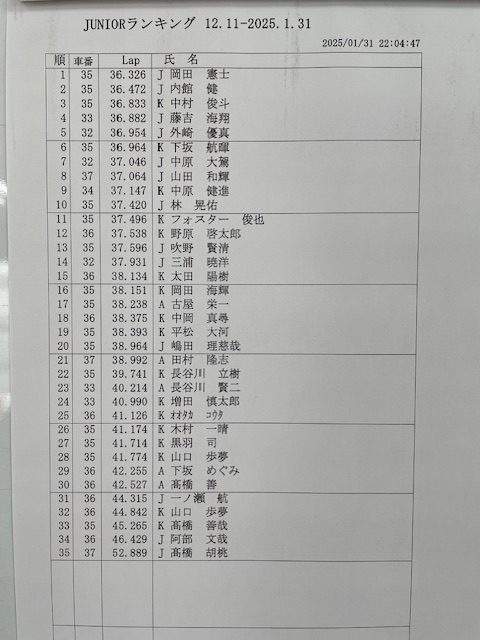 JUNIORランキング 12.11-2025.1.31
2025/01/31 22:04:47
順 車番 Lap 氏 名
1 35 36.326 J 岡田 憲士
2 35 36.472 J 内館 健
3 35 36.833 K 中村 俊斗
4 33 36.882 J 藤吉 海翔
5 32 36.954 J 外崎 優真
6 35 36.964 K 下坂 航暉
7 32 37.046 J 中原 大駕
8 37 37.064 J 山田 和輝
9 34 37.147 K 中原 健進
10 35 37.420 J 林 晃佑
11 35 37.496 K フォスター 俊也
12 36 37.538 K 野原 啓太郎
13 35 37.596 J 吹野 賢清
14 32 37.931 J 三浦 暁洋
15 36 38.134 K 太田 陽樹
16 35 38.151 K 岡田 海輝
17 35 38.238 A 古屋 栄一
18 36 38.375 K 中岡 真尋
19 35 38.393 K 平松 大河
20 35 38.964 J 嶋田 理慈哉
21 37 38.992 A 田村 隆志
22 35 39.741 K 長谷川 立樹
23 33 40.214 A 長谷川 賢二
24 33 40.990 K 増田 慎太郎
25 36 41.126 K ｵｵﾀｶ ｺｳﾀ
26 35 41.174 K 木村 一晴
27 35 41.714 K 黒羽 司
28 35 41.774 K 山口 歩夢
29 36 42.255 A 下坂 めぐみ
30 36 42.527 A 高橋 善
31 36 44.315 J 一ノ瀬 航
32 36 44.842 K 山口 歩夢
33 35 45.265 K 高橋 善哉
34 36 46.429 J 阿部 文哉
35 37 52.889 J 高橋 胡桃